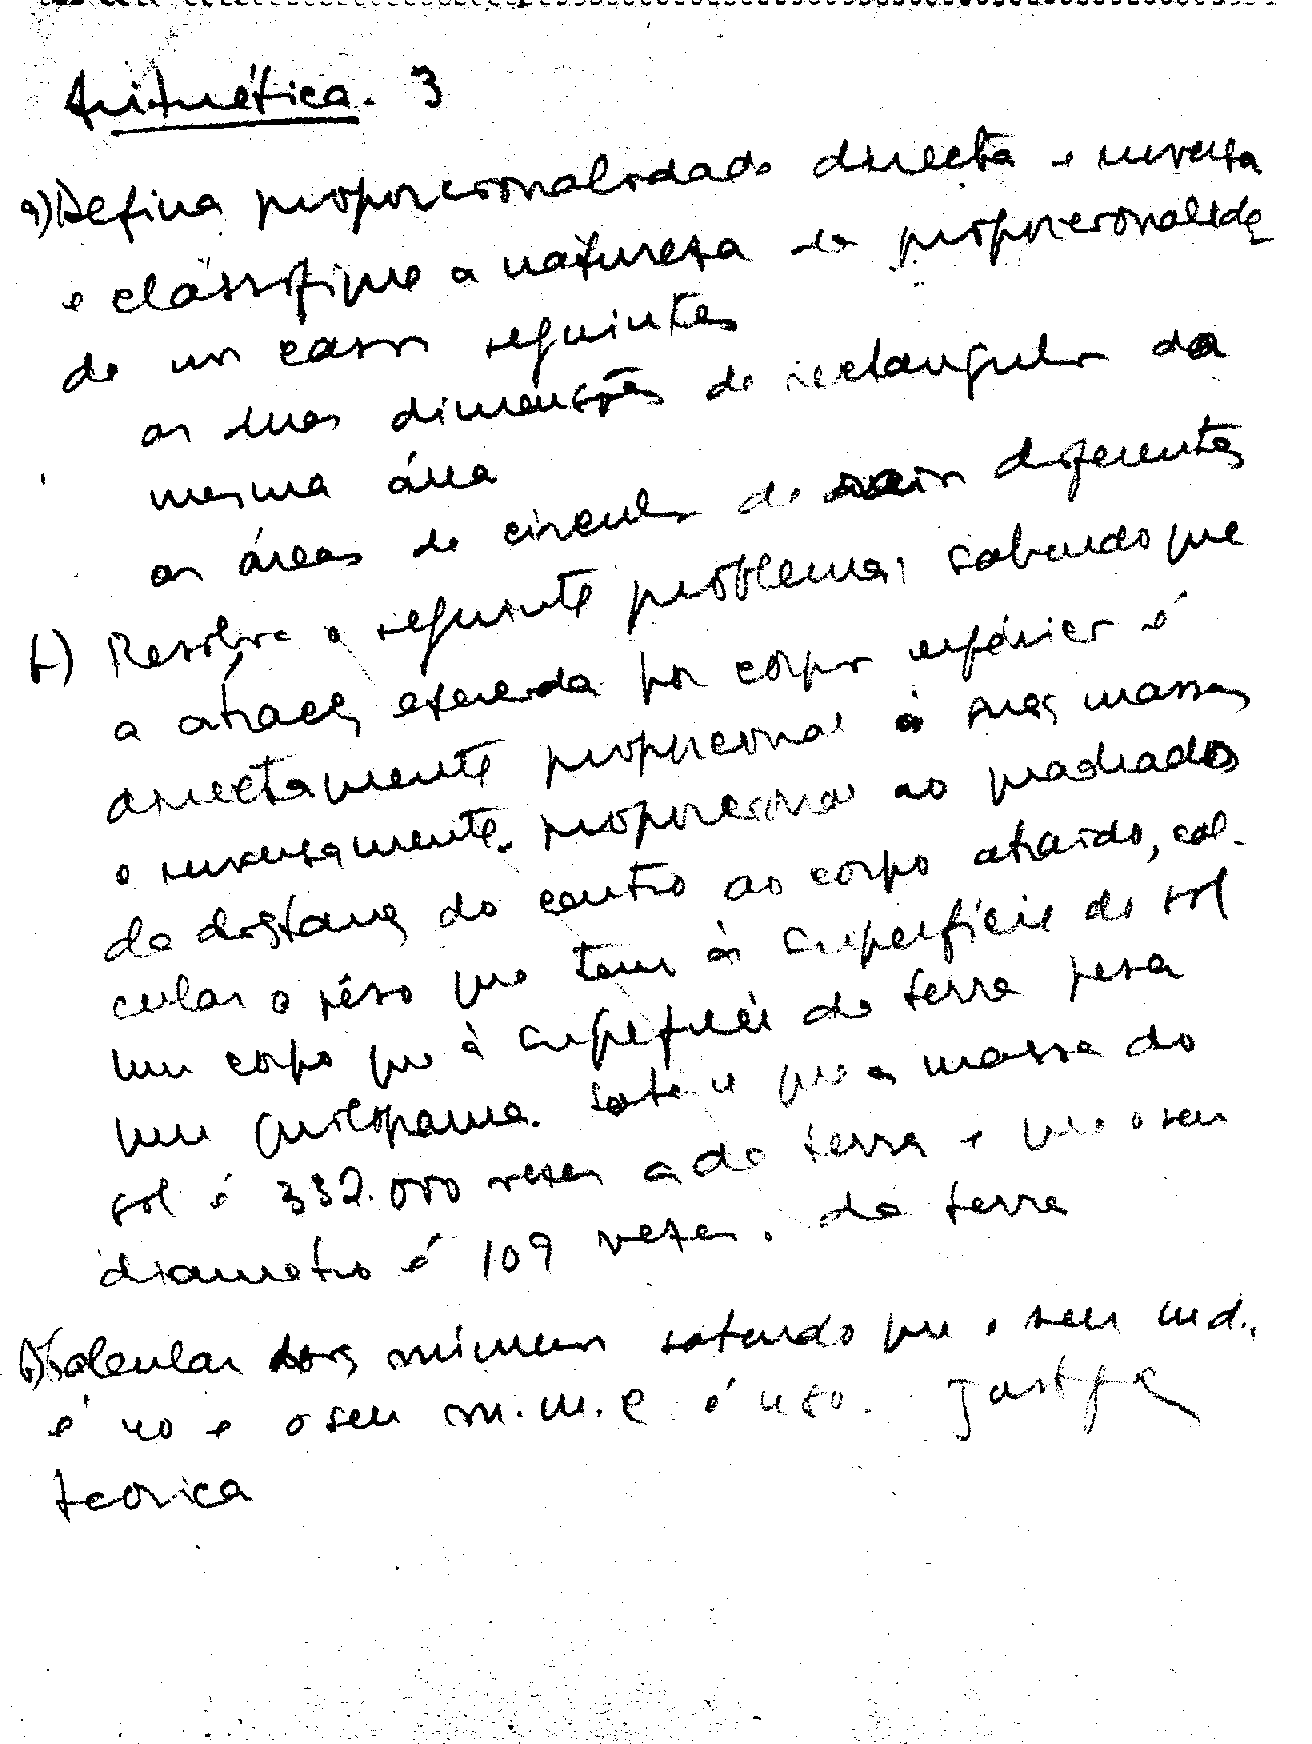 Aritmética. 3
a) Defina proporcionalidade directa e inversa
e classifique a natureza da proporcionalida
de nos casos seguintes
as duas dimensões de rectangulos da
mesma área
as áreas de circulos de raios diferentes
b) Resolva o seguinte problema: sabendo que
a atracção exercida por corpos esféricos é
directamente proporcional às suas massas
e inversamente proporcional ao quadrado
da distancia do centro ao corpo atraido, cal-
cular o pêso que tem à superficie do sol
um corpo que à superficie da terra pesa
um quilograma. Sabe-se que a massa do
sol é 332.000 vezes a da terra e que o seu
diametro é 109 vezes. da terra
Calcular dois números sabendo que o seu m.d.c.
é e o seu m.m.c é
teorica